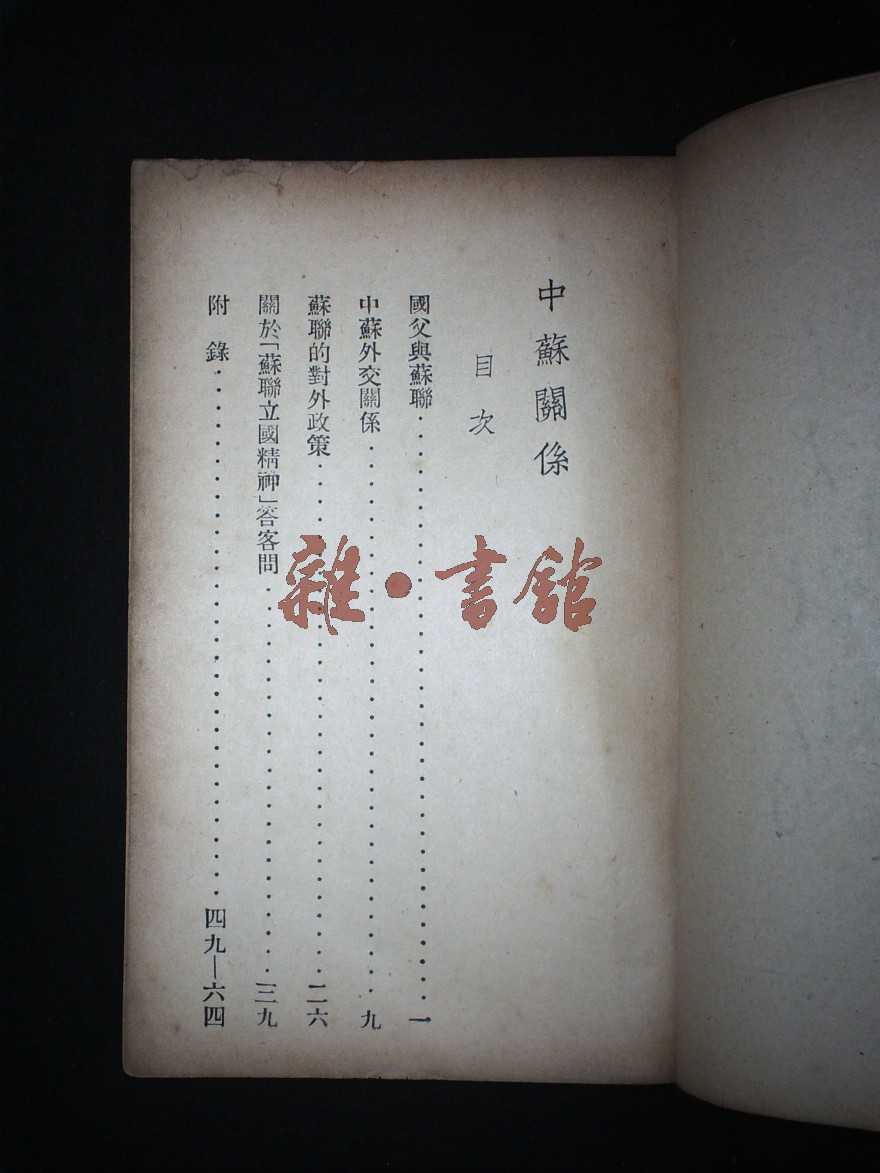 中蘇關係
目次
國父與蘇聯......................................一
中蘇外交關係......................................九
蘇聯的對外政策......................................二六
關於「蘇聯立國精神」答客問......................................三九
附錄......................................四九—六四
雜•書館